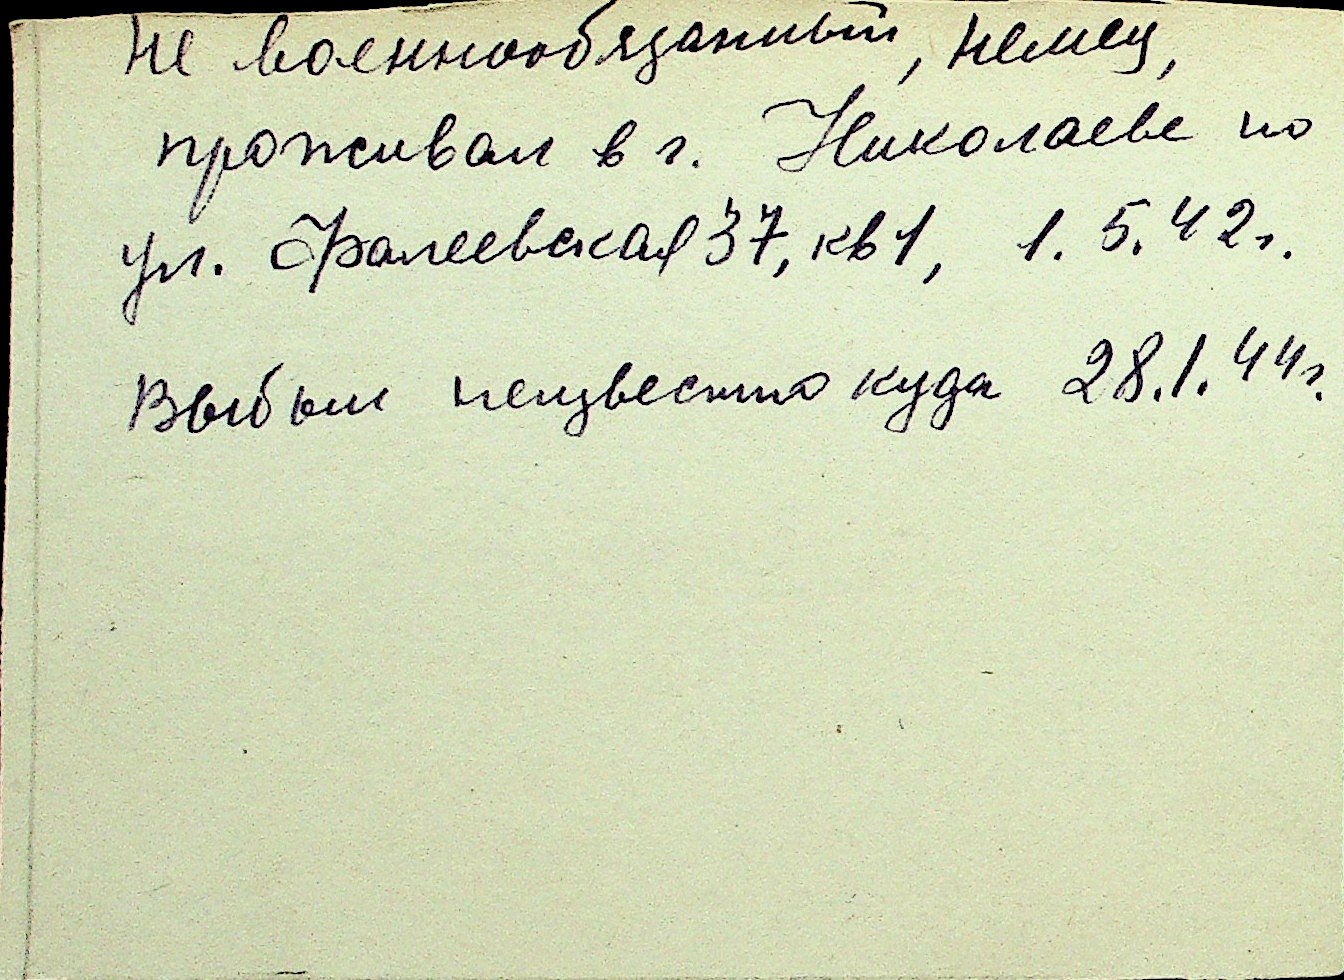 Не военнообязанный, немец,
проживал в г. Николаеве по
ул. Фалеевская 37, кв 1, 1.5.42 г.
Выбыл неизвестно куда 28.1.44 г.